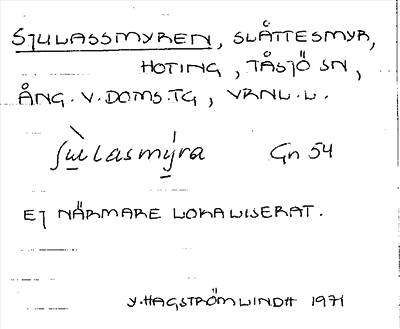 SJULASSMYREN, SLÅTTESMYR,
HOTING, TÅSJÖ SN,
ÅNG. V. DOMS. TG, VRNL. L.
ʃù̲lasmý̲ra Gn 54
EJ NÄRMARE LOKALISERAT.
Y. HAGSTRÖM LINDH 1971